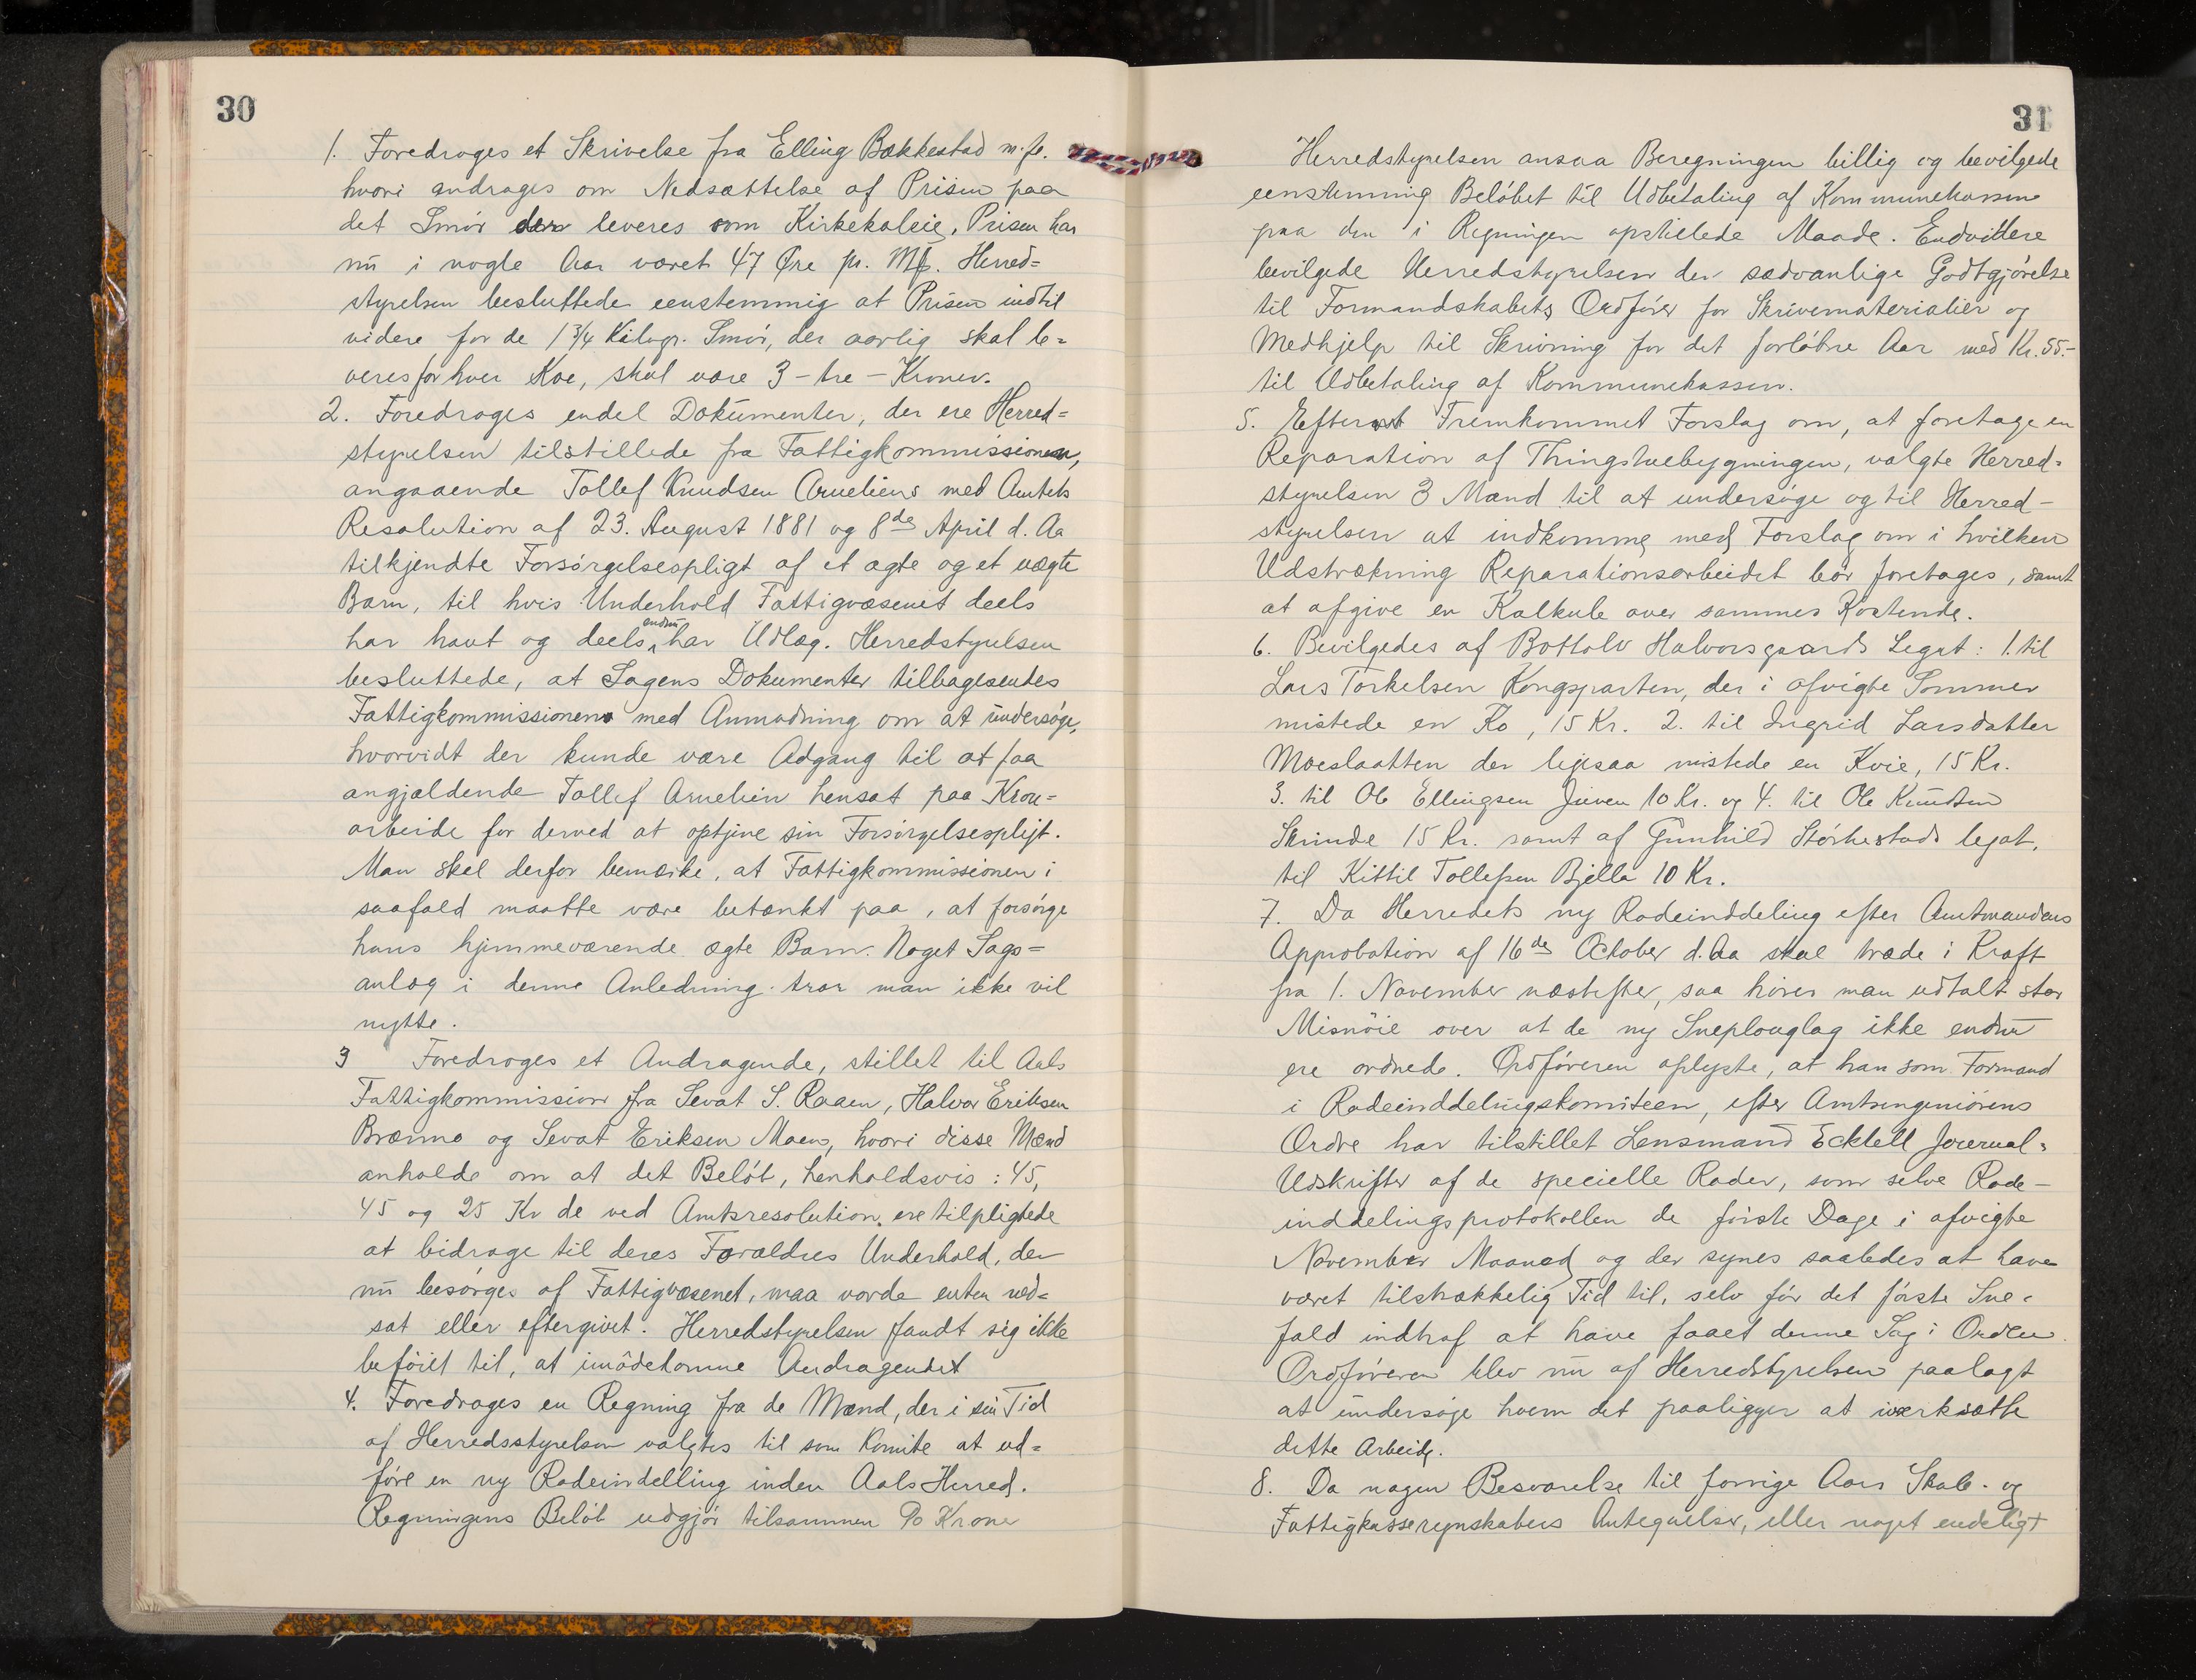 30
1. Foredroges et Skrivelse fra Elling Bækkestad m.fl.
hvori andrages om Nedsættelse af Prisen paa
det Smör der leveres som Kirkekoleie. Prisen har
nu i nogle Aar været 47 Øre pr. Mk. Herred=
styrelsen besluttede eenstemmig at Prisen indtil
videre for de 1 3/4 Kilogr. Smör, der aarlig skal le=
veres for hver Koe, skal være 3 - tre - Kroner.
2. Foredroges endel Dokumenter, der ere Herred=
styrelsen tilstillede fra Fattigkommissionen,
angaaende Tollef Knudsen Arneliens med Amtets
Resolution af 23. August 1881 og 8de April d. Aa
tilkjendte Forsörgelsespligt af et ægte og et uægte
Barn, til hvis Underhold Fattigvæsenet deels
har havt og deels endnu har Udlæg. Herredstyrelsen
besluttede, at Sagens Dokumenter tilbagesendes
Fattigkommissionen med Anmodning om at undersöge,
hvorvidt der kunde være Adgang til at faa
angjældende Tollef Arnelien hensat paa Kron=
arbeide for derved at optjene sin Forsörgelsespligt.
Man skal derfor bemærke, at Fattigkommissionen i
saafald maatte være betænkt paa, at forsörge
hans hjemmeværende ægte Barn. Noget Sags=
anlæg i denne Anledning tror man ikke vil
nytte.
3 Foredroges et Andragende, stillet til Aals
Fattigkommission fra Sevat S. Raaen, Halvor Eriksen
Brænno og Sevat Eriksen Moen, hvori disse Mænd
anholde om at det Belöb, henholdsvis: 45,
45 og 25 Kr de ved Amtsresolution ere tilpligtede
at bidrage til deres Forældres Underhold, der
nu besörges af Fattigvæsenet, maa vorde enten ned=
sat eller eftergivet. Herredstyrelsen fandt sig ikke
beföiet til, at imödekomme Andragendet
4. Foredroges en Regning fra de Mænd, der i sin Tid
af Herredsstyrelsen valgtes til som Komite at ud=
före en ny Rodeinddelling inden Aals Herred.
Regningens Belöb udgjör tilsammen 90 Kroner
31
Herredstyrelsen ansaa Beregningen billig og bevilgede
eenstemmig Belöbet til Udbetaling af Kommunekassen
paa den i Regningen opstillede Maade. Endvidere
bevilgede Herredstyrelsen den sædvanlige Godtgjörelse
til Formandskabets Ordförer for Skrivematerialier og
Medhjelp til Skrivning for det forlöbne Aar med Kr. 55.-
til Udbetaling af Kommunekassen.
5. Efter et Fremkommet Forslag om, at foretage en
Reparation af Thingstuebygningen, valgte Herred=
styrelsen 3 Mænd til at undersöge og til Herred-
styrelsen at indkomme med Forslag om i hvilken
Udstrækning Reparationsarbeidet bör foretages, samt
at afgive en Kalkule over sammes Kostende.
6. Bevilgedes af Bottolv Halvorsgaards Legat: 1. til
Lars Torkelsen Kongsparten, der i afvigte Sommer
mistede en Ko, 15 Kr. 2. til Ingrid Larsdatter
Moeslaatten der ligesaa mistede en Kvie, 15 Kr.
3. til Ole Ellingsen Juven 10 Kr. og 4. til Ole Knudsen
Skrinde 15 Kr. samt af Gunhild Störkestads legat,
til Kittil Tollefsen Bjella 10 Kr.
7. Da Herredets ny Rodeinddeling efter Amtmandens
Approbation af 16de October d. Aa skal træde i Kraft
fra 1. November næstefter, saa hörer man udtalt stor
Misnöie over at de ny Sneplouglag ikke endnu
ere ordnede. Ordföreren oplyste, at han som Formand
i Rodeinddelingskomiteen, efter Amtsingeniörens
Ordre har tilstillet Lensmand Ecktell Journal=
Udskrifter af de specielle Roder, som selve Rode-
inddelingsprotokollen de förste Dage i afvigte
November Maaned og der synes saaledes at have
været tilstrækkelig Tid til, selv för det förste Sne=
fald indtraf at have faaet denne Sag i Orden.
Ordföreren blev nu af Herredstyrelsen paalagt
at undersöge hvem det paaligger at iværksætte
dette Arbeide.
8. Da nogen Besvarelse til forrige Aars Skole- og
Fattigkasseregnskabers Anteqvelser, eller noget endeligt